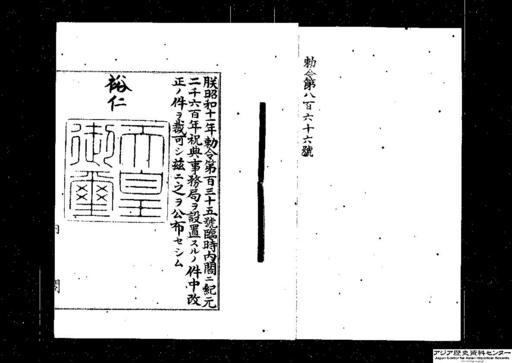 勅令第八百六十六號
朕昭和十一年勅令第百三十五號臨時內閣ニ紀元
二千六百年祝典事務局ヲ設置スルノ件中改
正ノ件ヲ裁可シ茲ニ之ヲ公布セシム
裕仁
天皇
御璽
アジア歴史資料センター
Japan Center for Asian Historical Records